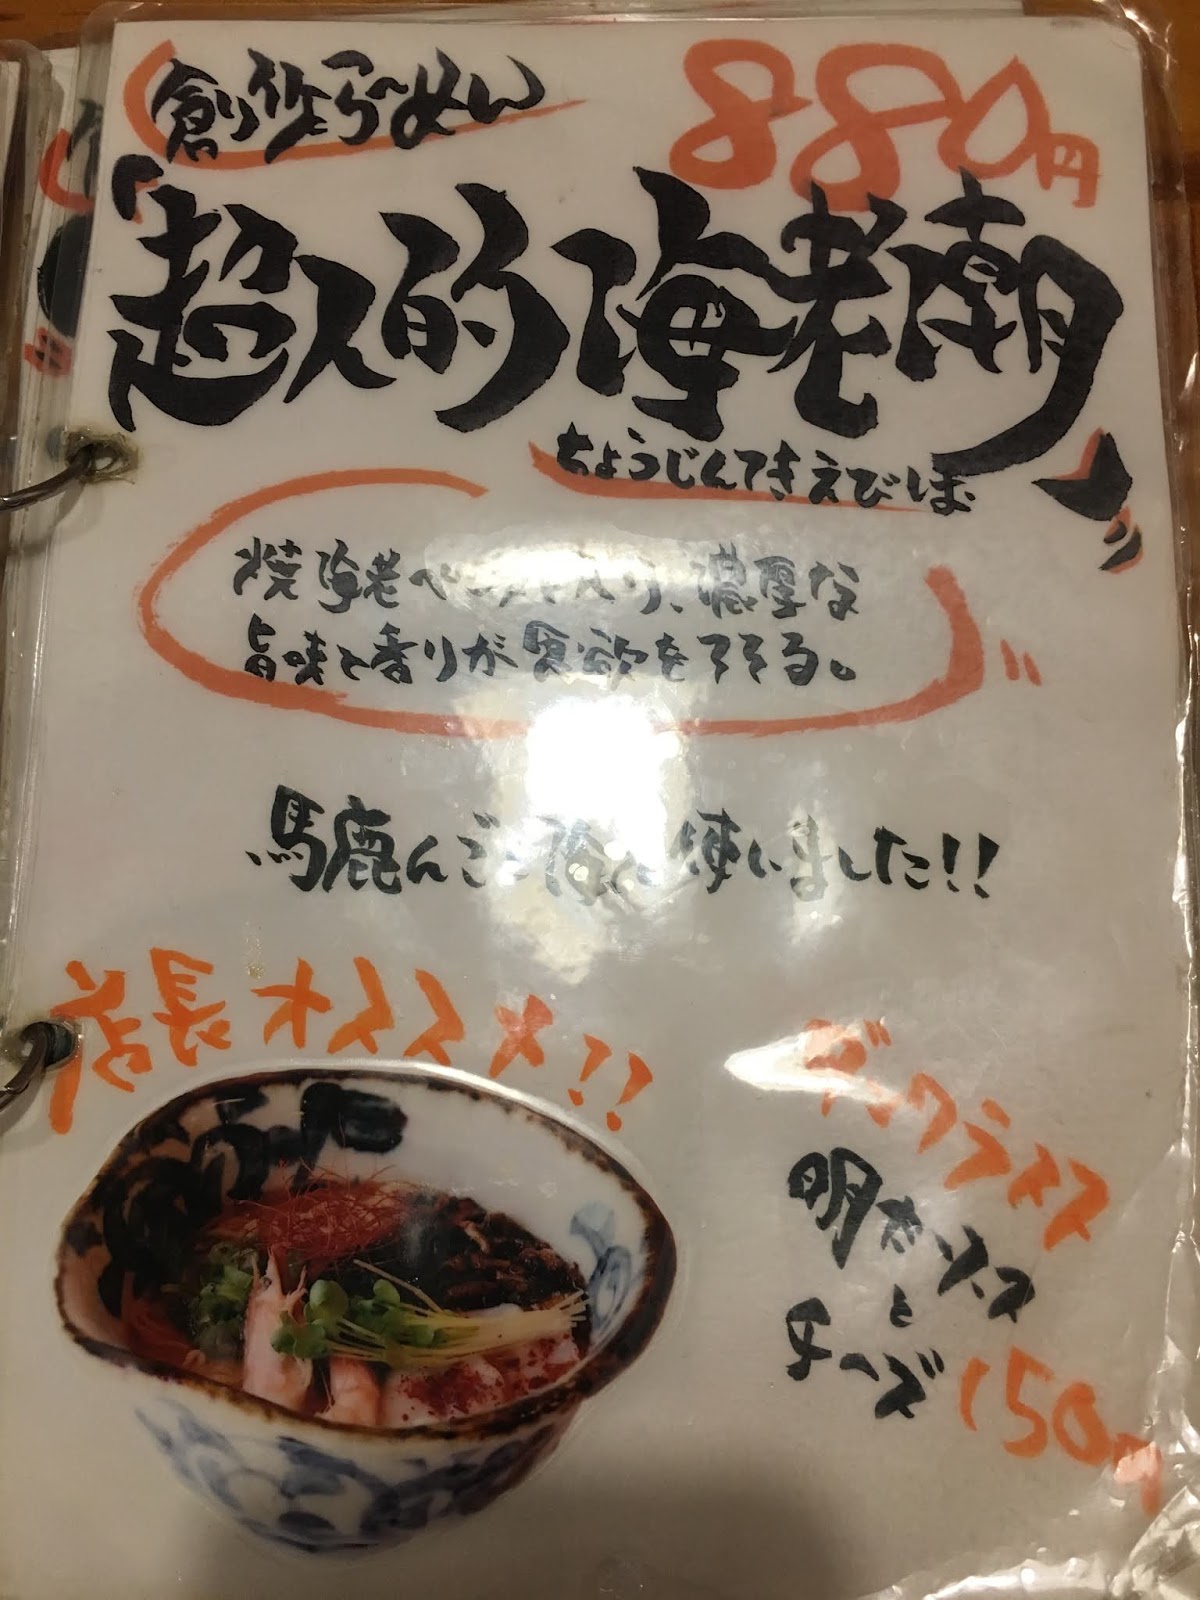 創作らーめん 880円
「超人的海老潮」
ちょうじんてきえびしお
焼海老ペースト入り、濃厚な
旨味と香りが食欲をそそる。
馬鹿んご 使いました!!
店長オススメ!!
ライス
明太ソース
と
チーズ 150円